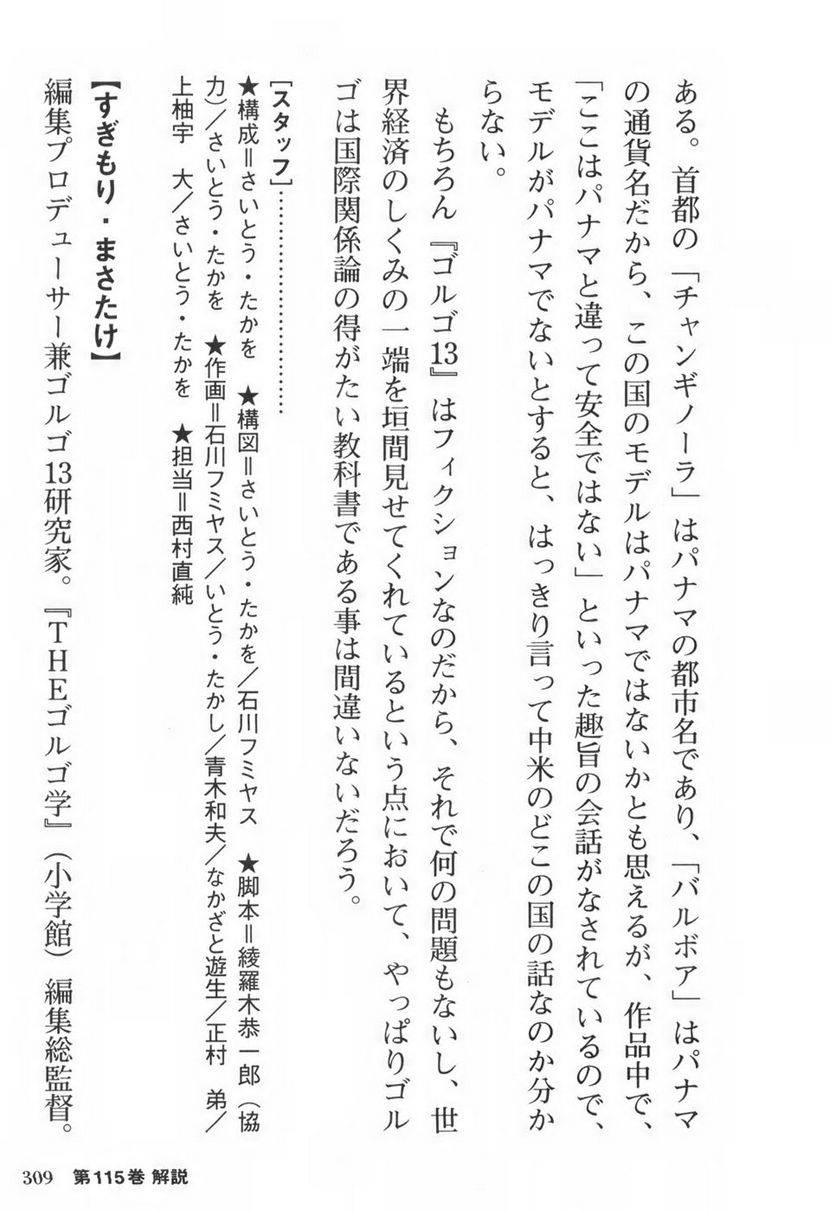 ある。首都の「チャンギノーラ」はパナマの都市名であり、「バルボア」はパナマ
の通貨名だから、この国のモデルはパナマではないかとも思えるが、作品中で、
「ここはパナマと違って安全ではない」といった趣旨の会話がなされているので、
モデルがパナマでないとすると、はっきり言って中米のどこの国の話なのか分か
らない。
もちろん『ゴルゴ13』はフィクションなのだから、それで何の問題もないし、世
界経済のしくみの一端を垣間見せてくれているという点において、やっぱりゴル
ゴは国際関係論の得がたい教科書である事は間違いないだろう。
[スタッフ]…………………………
★構成＝さいとう・たかを ★構図＝さいとう・たかを／石川フミヤス ★脚本＝綾羅木恭一郎（協
力）／さいとう・たかを ★作画＝石川フミヤス／いとう・たかし／青木和夫／なかざと遊生／正村 弟／
上柚宇 大／さいとう・たかを ★担当＝西村直純
【すぎもり・まさたけ】
編集プロデューサー兼ゴルゴ13研究家。『THEゴルゴ学』（小学館）編集総監督。
309 第115巻 解説